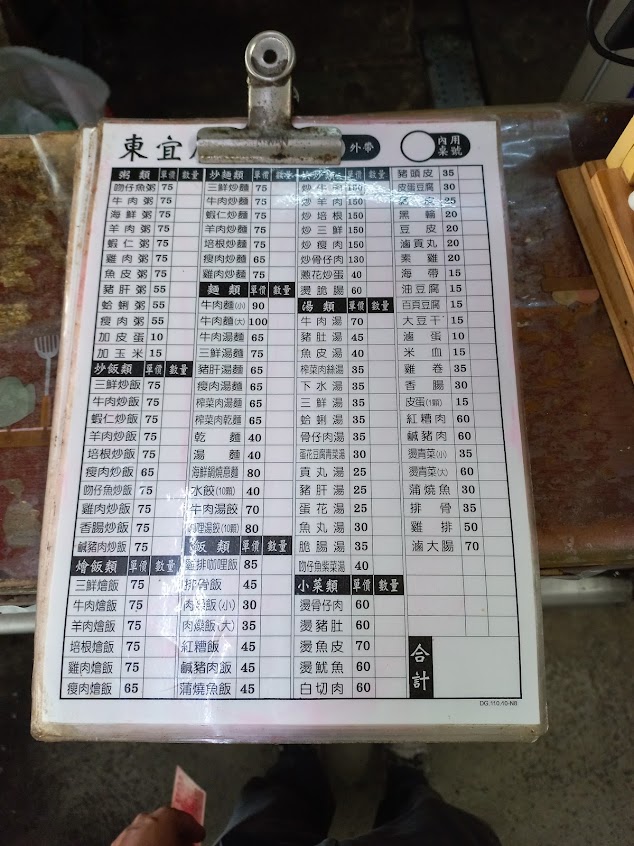 東宜
外帶
內用
桌號
粥類 單價 數量
吻仔魚粥 75
牛肉粥 75
海鮮粥 75
羊肉粥 75
蝦仁粥 75
雞肉粥 75
魚皮粥 75
豬肝粥 55
蛤蜊粥 55
瘦肉粥 55
加皮蛋 10
加玉米 15
炒飯類 單價 數量
三鮮炒飯 75
牛肉炒飯 75
蝦仁炒飯 75
羊肉炒飯 75
培根炒飯 75
瘦肉炒飯 65
吻仔魚炒飯 75
雞肉炒飯 75
香腸炒飯 75
鹹豬肉炒飯 75
燴飯類 單價 數量
三鮮燴飯 75
牛肉燴飯 75
羊肉燴飯 75
培根燴飯 75
雞肉燴飯 75
瘦肉燴飯 65
炒麵類 單價 數量
三鮮炒麵 75
牛肉炒麵 75
蝦仁炒麵 75
羊肉炒麵 75
培根炒麵 75
瘦肉炒麵 65
雞肉炒麵 75
麵類 單價 數量
牛肉麵(小) 90
牛肉麵(大) 100
牛肉湯麵 65
三鮮湯麵 75
豬肝湯麵 65
瘦肉湯麵 65
榨菜肉湯麵 65
榨菜肉乾麵 65
乾麵 40
湯麵 40
海鮮鍋燒意麵 80
水餃(10顆) 40
牛肉湯餃 70
咖哩湯餃(10顆) 80
飯類 單價 數量
雞排咖哩飯 85
排骨飯 45
肉燥飯(小) 30
肉燥飯(大) 35
紅糟飯 45
鹹豬肉飯 45
蒲燒魚飯 45
單價 數量
炒牛肉 150
炒羊肉 150
炒培根 150
炒三鮮 150
炒瘦肉 150
炒骨仔肉 130
蔥花炒蛋 40
燙脆腸 60
湯類 單價 數量
牛肉湯 70
豬肚湯 45
魚皮湯 40
榨菜肉絲湯 35
下水湯 35
三鮮湯 35
蛤蜊湯 35
骨仔肉湯 35
蛋花豆腐青菜湯 30
貢丸湯 25
豬肝湯 25
蛋花湯 25
魚丸湯 30
脆腸湯 35
吻仔魚紫菜湯 40
小菜類 單價 數量
燙骨仔肉 60
燙豬肚 60
燙魚皮 70
燙魷魚 60
白切肉 60
豬頭皮 35
皮蛋豆腐 30
皮 25
黑輪 20
豆皮 20
滷貢丸 20
素雞 20
海帶 15
油豆腐 15
百頁豆腐 15
大豆干 15
滷蛋 10
米血 15
雞卷 35
香腸 30
皮蛋(1顆) 15
紅糟肉 60
鹹豬肉 60
燙青菜(小) 35
燙青菜(大) 60
蒲燒魚 30
排骨 35
雞排 50
滷大腸 70
合計
DG.110.10-N8